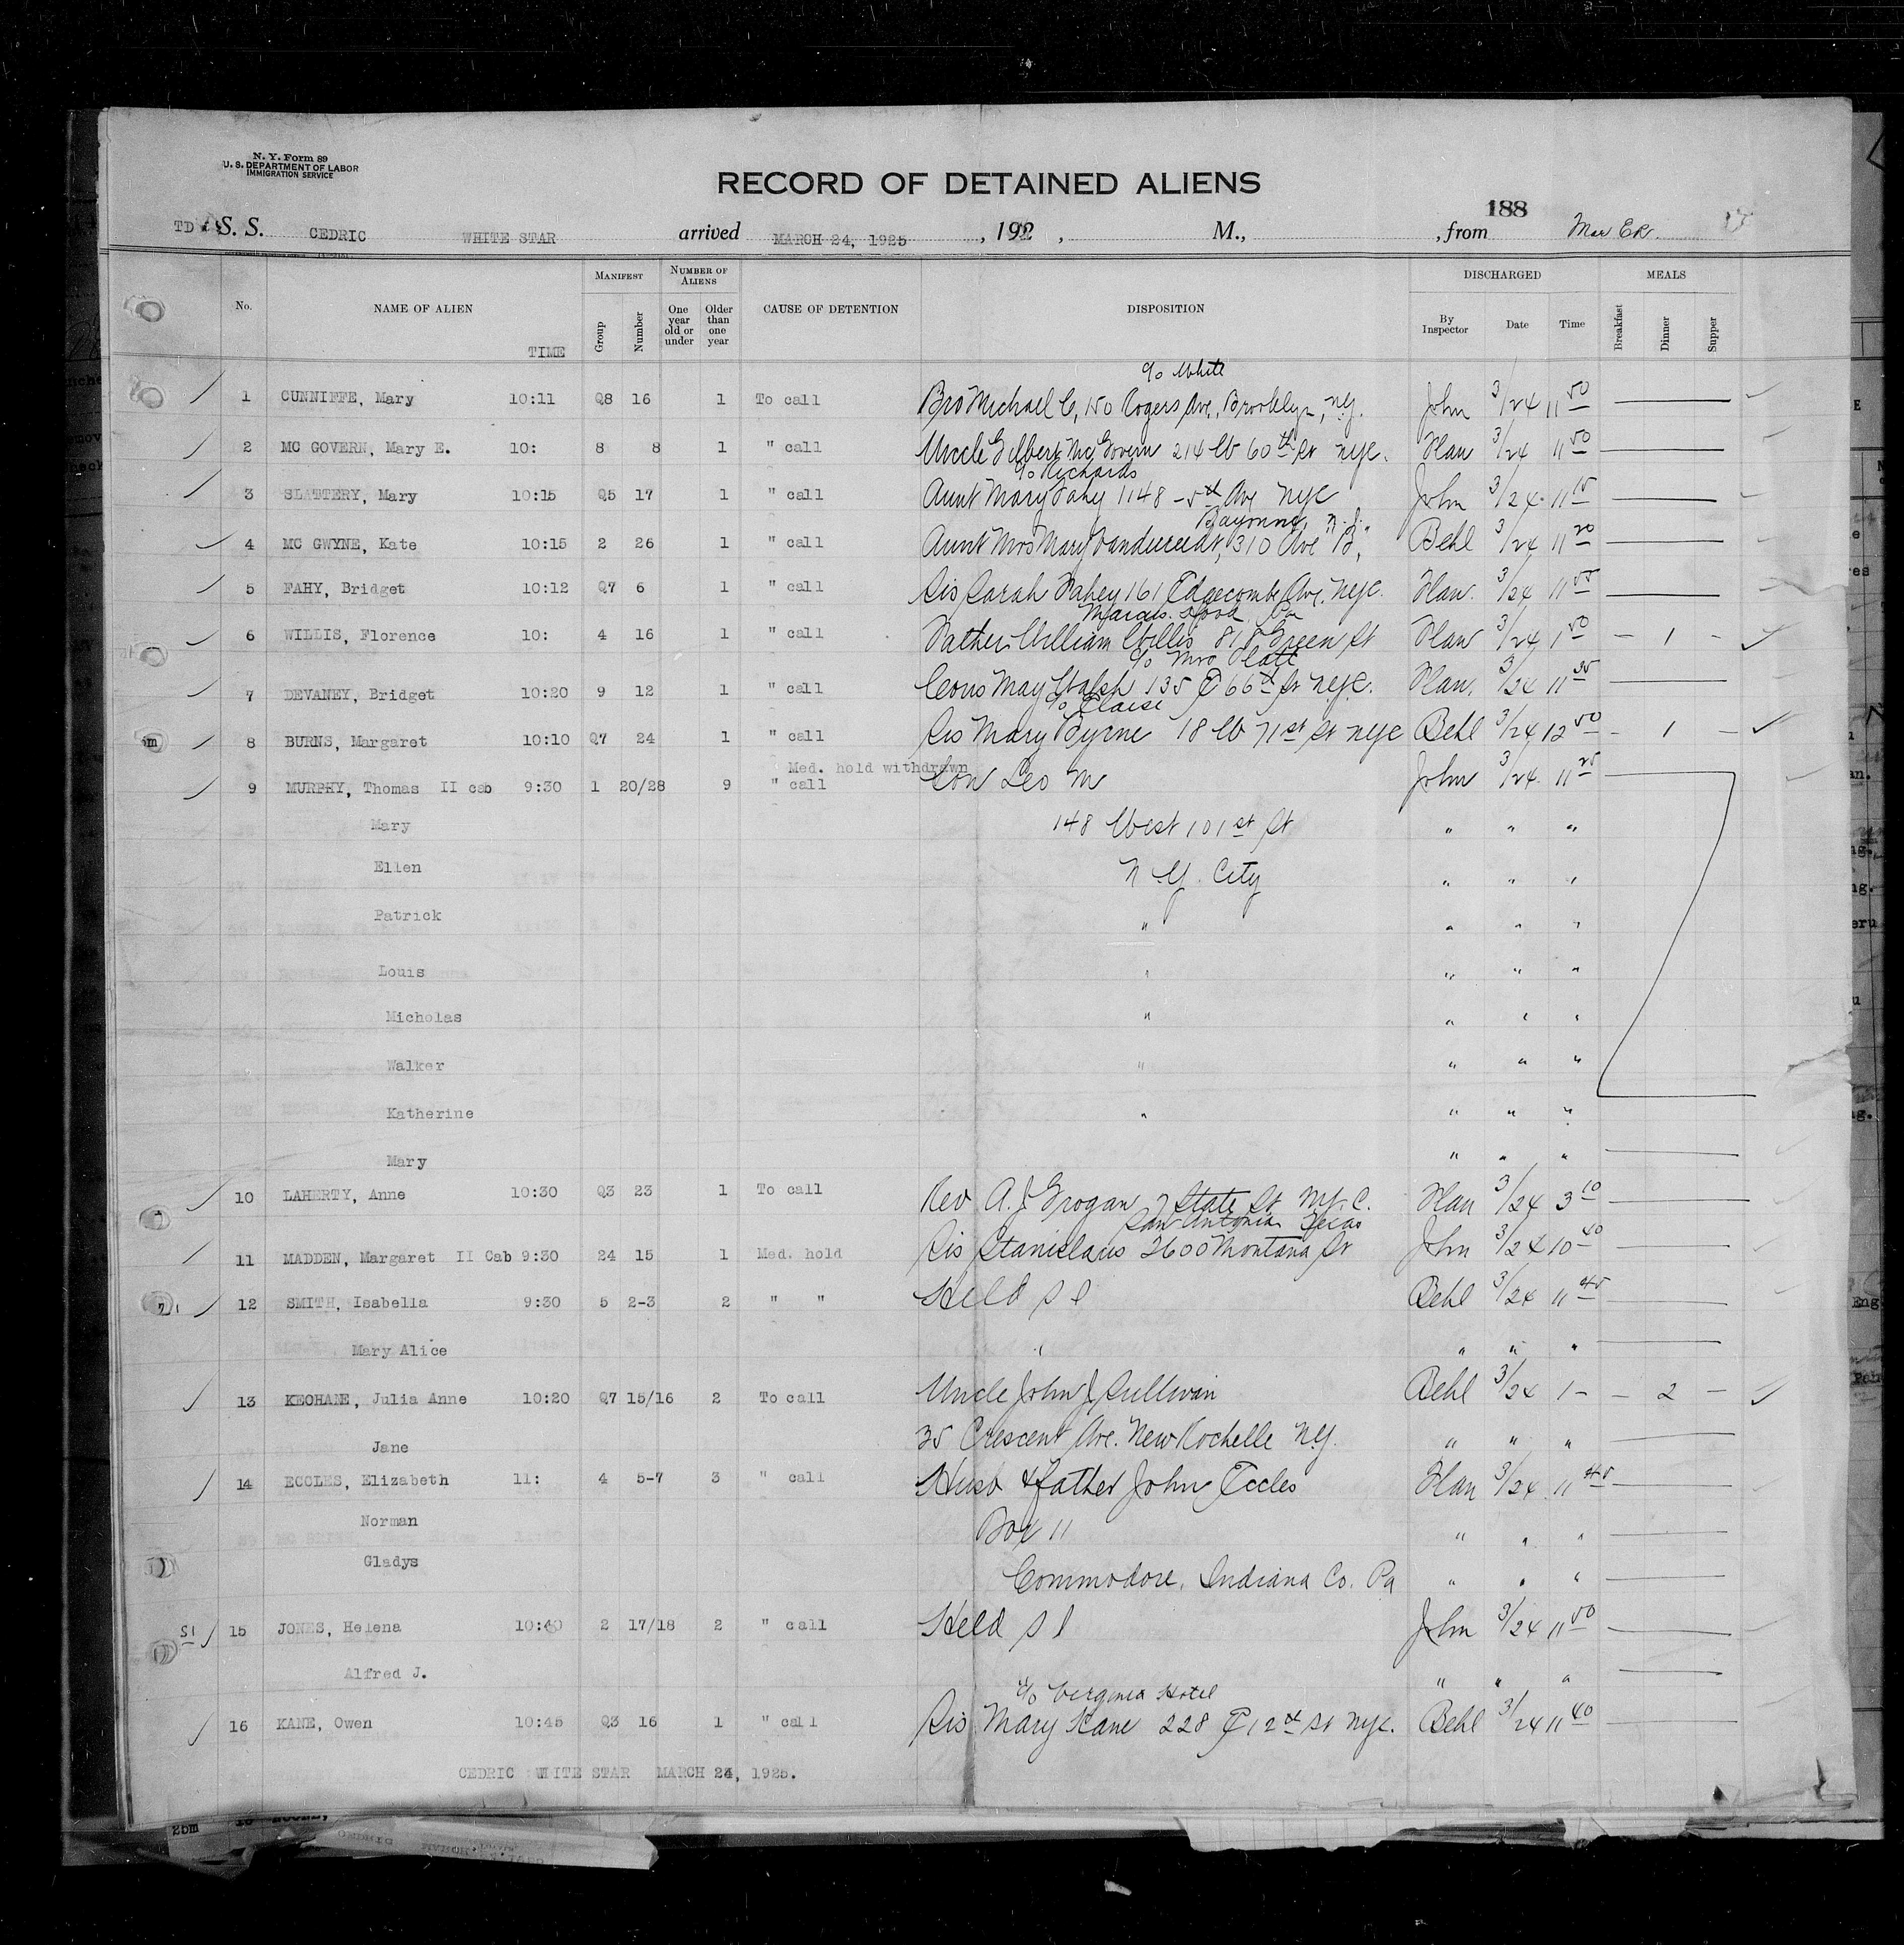 N. Y. Form 89
U. S. DEPARTMENT OF LABOR
IMMIGRATION SERVICE
RECORD OF DETAINED ALIENS
188
TD S. S. CEDRIC WHITE STAR arrived MARCH 24, 1925 , 192 , M., , from
No. NAME OF ALIEN TIME MANIFEST Group Number NUMBER OF ALIENS One year old or under Older than one year CAUSE OF DETENTION DISPOSITION DISCHARGED By Inspector Date Time MEALS Breakfast Dinner Supper
c/o White
1 CUNNIFFE, Mary 10:11 Q8 16 1 To call Bro Michael C, 150 Rogers Ave, Brooklyn, N.Y. John 3/24 11 50
2 MC GOVERN, Mary E. 10: 8 8 1 " call Uncle Gilbert McGovern 214 W 60th St NYC. Han 3/24 11 50
c/o Richards
3 SLATTERY, Mary 10:15 Q5 17 1 " call Aunt Mary Fahy 1148 - 5th Ave NYC John 3/24 11 15
Bayonne, N.J.
4 MC GWYNE, Kate 10:15 2 26 1 " call Aunt Mrs Mary 310 Ave "B", Behl 3/24 11 20
5 FAHY, Bridget 10:12 Q7 6 1 " call Sis Sarah Fahey 161 Edgecombe Ave. NYC. Han. 3/24 11 55
Marcus Hook Pa
6 WILLIS, Florence 10: 4 16 1 " call Father William Willis 818 Green St Han 3/24 1 50 - 1 -
c/o Mrs Platt
7 DEVANEY, Bridget 10:20 9 12 1 " call Cous May Walsh 135 E 66th St NYC. Han. 3/24 11 35
c/o
8 BURNS, Margaret 10:10 Q7 24 1 " call Sis Mary Byrne 18 W 71st St NYC Behl 3/24 12 50 - 1 -
Med. hold withdrawn
9 MURPHY, Thomas II cab 9:30 1 20/28 9 " call Son Leo M John 3/24 11 25
Mary 148 West 101st St " " "
Ellen N.Y. City " " "
Patrick " " " "
Louis " " " "
Micholas " " " "
Walker " " " "
Katherine " " " "
Mary " " "
10 LAHERTY, Anne 10:30 Q3 23 1 To call Rev A. J Grogan 7 State St NY. C. Han 3/24 3 10
San Antonia Texas
11 MADDEN, Margaret II Cab 9:30 24 15 1 Med. hold Sis Stanislaus 2600 Montana St John 3/24 10 40
12 SMITH, Isabella 9:30 5 2-3 2 " " Held S I Behl 3/24 11 45
Mary Alice " " " "
13 KEOHANE, Julia Anne 10:20 Q7 15/16 2 To call Uncle John J Sullivan Behl 3/24 1- - 2 -
35 Crescent Ave. New Rochelle N.Y.
Jane " " "
14 ECCLES, Elizabeth 11: 4 5-7 3 " call Husb & father John Eccles Han 3/24 11 45
Norman Box 11 " " "
Gladys Commodore, Indiana Co. Pa " " "
SI 15 JONES, Helena 10:40 2 17/18 2 " call Held S I John 3/24 11 50
Alfred J. " " "
c/o Virginia Hotel
16 KANE, Owen 10:45 Q3 16 1 " call Sis Mary Kane 228 E 12th St NYC. Behl 3/24 11 40
CEDRIC WHITE STAR MARCH 24, 1925.